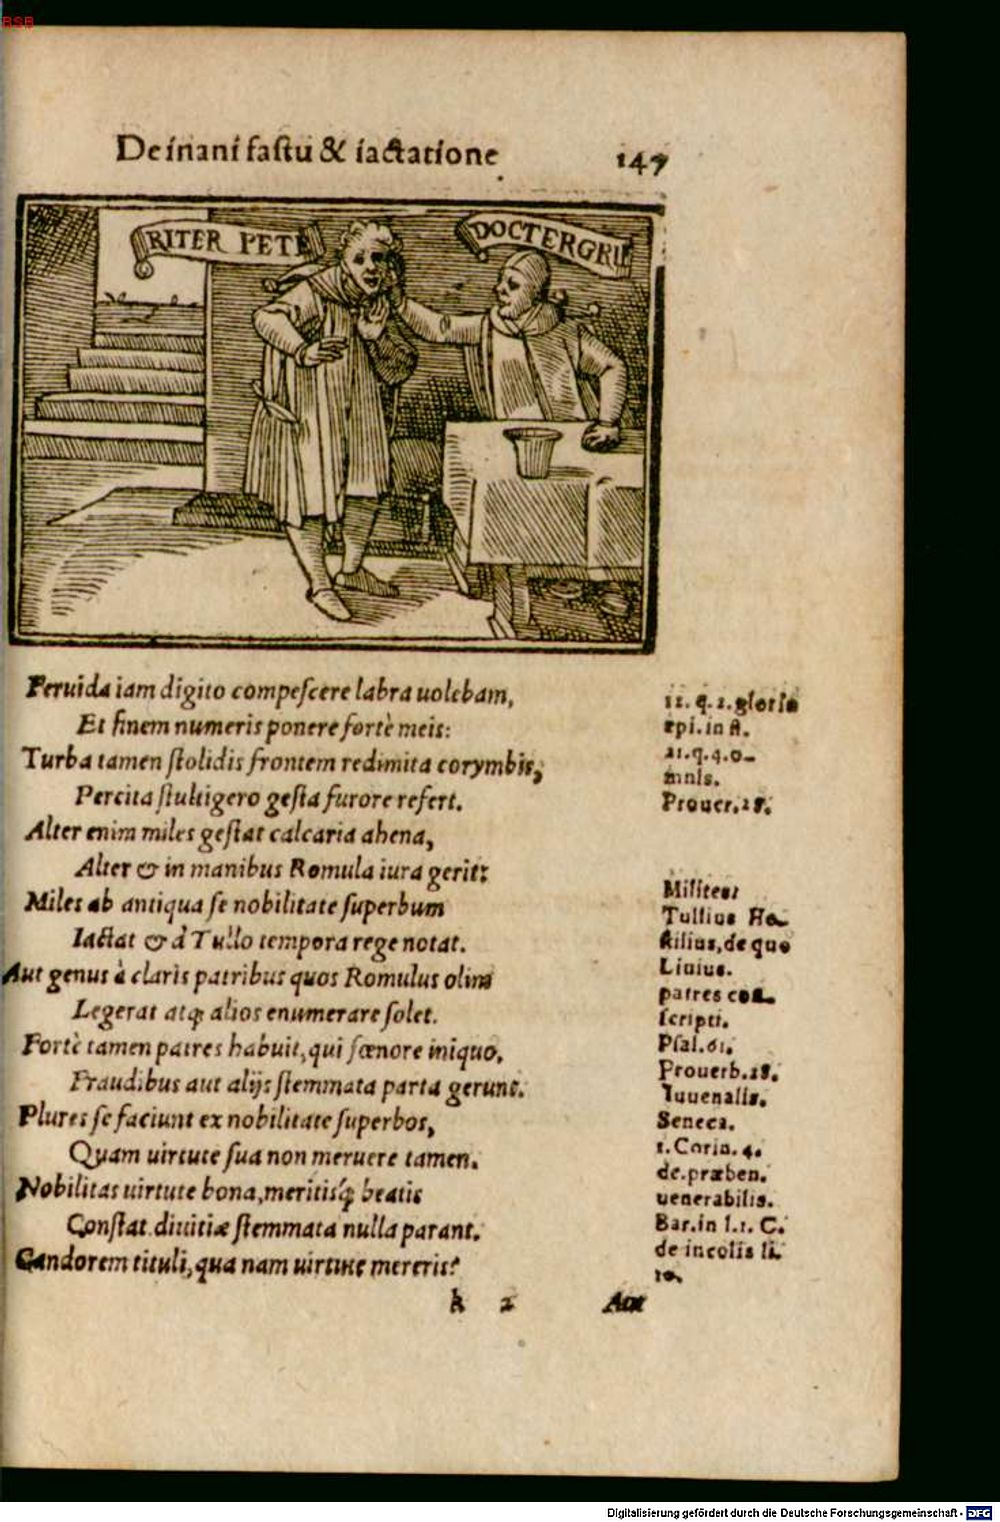 BSB
De inani fastu & iactatione 147
RITER PETE
DOCTERGRII
Feruida iam digito compescere labra uolebam,
Et finem numeris ponere fortè meis:
Turba tamen stolidis frontem redimita corymbis,
Percita stultigero gesta furore refert.
Alter enim miles gestat calcaria ahena,
Alter & in manibus Romula iura gerit:
Miles ab antiqua se nobilitate superbum
Iactat & à Tullo tempora rege notat.
Aut genus à claris patribus quos Romulus olim
Legerat atq; alios enumerare solet.
Fortè tamen patres habuit, qui fœnore iniquo,
Fraudibus aut alijs stemmata parta gerunt.
Plures se faciunt ex nobilitate superbos,
Quam uirtute sua non meruere tamen.
Nobilitas uirtute bona, meritisq́; beatis
Constat. diuitiæ stemmata nulla parant.
Candorem tituli, qua nam uirtute mereris?
k 2 Aut
11. q. 1. gloria
epi. in fi.
21. q. 4. o-
mnis.
Prouer. 28.
Milites:
Tullius Ho-
stilius, de quo
Liuius.
patres con-
scripti.
Psal. 61.
Prouerb. 28.
Iuuenalis.
Seneca.
1. Corin. 4.
de. præben.
uenerabilis.
Bar. in l. 1. C.
de incolis li.
10.
Digitalisierung gefördert durch die Deutsche Forschungsgemeinschaft - DFG